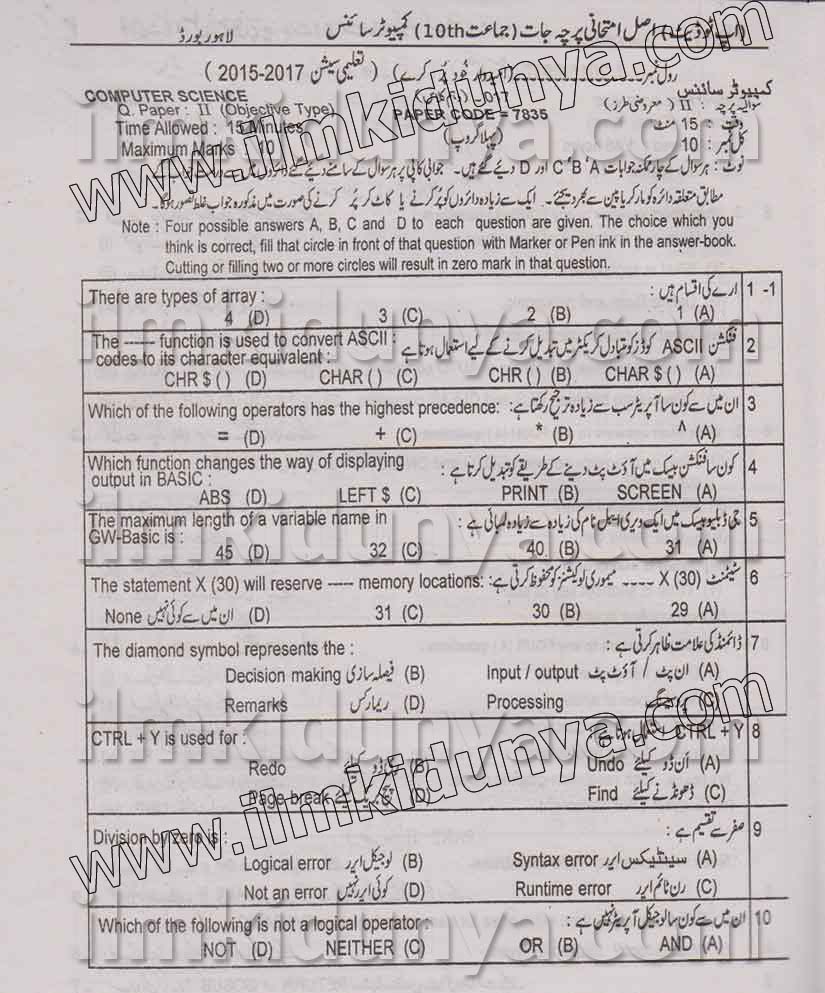 (اپ ٹو ڈیٹ) اصل امتحانی پرچہ جات (جماعت 10th) کمپیوٹر سائنس لاہور بورڈ
رول نمبر (امیدوار خود پُر کرے) (تعلیمی سیشن 2015-2017)
کمپیوٹر سائنس COMPUTER SCIENCE
سوالیہ پرچہ : II (معروضی طرز) 2017 Q. Paper : II (Objective Type)
وقت : 15 منٹ PAPER CODE = 7835 Time Allowed : 15 Minutes
کل نمبر : 10 (پہلا گروپ) Maximum Marks : 10
نوٹ : ہر سوال کے چار ممکنہ جوابات A ، B ، C اور D دیے گئے ہیں۔ جوابی کاپی پر ہر سوال کے سامنے دیے گئے دائروں میں سے درست جواب کے
مطابق متعلقہ دائرہ کو مارکر یا پین سے بھر دیجئے۔ ایک سے زیادہ دائروں کو پُر کرنے یا کاٹ کر پُر کرنے کی صورت میں مذکورہ جواب غلط تصور ہوگا۔
Note : Four possible answers A, B, C and D to each question are given. The choice which you
think is correct, fill that circle in front of that question with Marker or Pen ink in the answer-book.
Cutting or filling two or more circles will result in zero mark in that question.
1 -1 ارے کی اقسام ہیں : There are types of array :
(A) 1 (B) 2 (C) 3 (D) 4
2 فنکشن ASCII کوڈز کو متبادل کریکٹر میں تبدیل کرنے کے لیے استعمال ہوتا ہے : The ------ function is used to convert ASCII
codes to its character equivalent :
(A) CHAR $ ( ) (B) CHR ( ) (C) CHAR ( ) (D) CHR $ ( )
3 ان میں سے کون سا آپریٹر سب سے زیادہ ترجیح رکھتا ہے : Which of the following operators has the highest precedence:
(A) ^ (B) * (C) + (D) =
4 کون سا فنکشن بیسک میں آؤٹ پٹ دینے کے طریقے کو تبدیل کرتا ہے : Which function changes the way of displaying
output in BASIC :
(A) SCREEN (B) PRINT (C) LEFT $ (D) ABS
5 جی ڈبلیو بیسک میں ایک ویری ایبل نام کی زیادہ سے زیادہ لمبائی ہے : The maximum length of a variable name in
GW-Basic is :
(A) 31 (B) 40 (C) 32 (D) 45
6 سٹیٹمنٹ X (30) ---- میموری لوکیشنز کو محفوظ کرتی ہے : The statement X (30) will reserve ----- memory locations:
(A) 29 (B) 30 (C) 31 (D) ان میں سے کوئی نہیں None
7 ڈائمنڈ کی علامت ظاہر کرتی ہے : The diamond symbol represents the :
(A) ان پٹ / آؤٹ پٹ Input / output (B) فیصلہ سازی Decision making
Processing (D) ریمارکس Remarks
8 CTRL + Y CTRL + Y is used for :
(A) اَن ڈو کیلئے Undo (B) ری ڈو کیلئے Redo
(C) ڈھونڈنے کیلئے Find (D) پیج بریک کیلئے Page break
9 صفر سے تقسیم ہے : Division by zero is :
(A) سینٹیکس ایرر Syntax error (B) لوجیکل ایرر Logical error
(C) رن ٹائم ایرر Runtime error (D) کوئی ایرر نہیں Not an error
10 ان میں سے کون سا لوجیکل آپریٹر نہیں ہے : Which of the following is not a logical operator :
(A) AND (B) OR (C) NEITHER (D) NOT
www.ilmkidunya.com
www.ilmkidunya.com
ilmkidunya.com
ilmkidunya.com
ilmkidunya.com
ilmkidunya.com
ilmkidunya.com
ilmkidunya.com